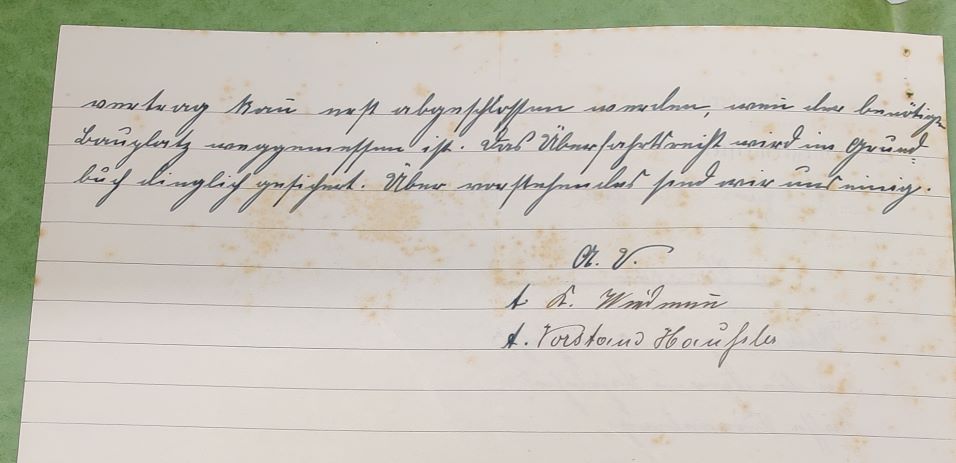 vertrag kann erst abgeschlossen werden, wenn der benötigte
Bauplatz weggemessen ist. Das Überfahrtsrecht wird im Grund-
buch dinglich gesichert. Über vorstehendes sind wir uns einig.
A. V.
t. K. Widmann
t. Vorstand Häussler